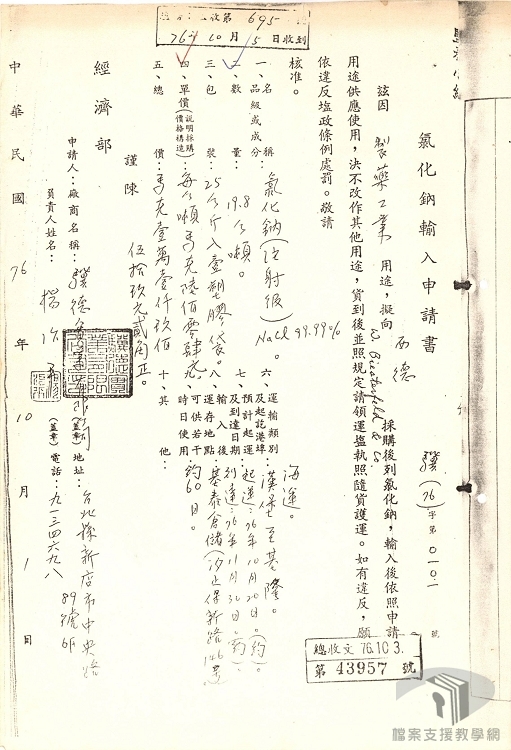 收 第 695
76年 10月 5日收到
氯化鈉輸入申請書
驥(76)字第0101號
茲因 製藥工業 用途,擬向 西德 W. Biesterfeld & Co. 採購後列氯化鈉,輸入後依照申請
用途供應使用,決不改作其他用途,貨到後並照規定請領運塩執照隨貨護運。如有違反,願
依違反塩政條例處罰。敬請
核准。
一、名稱:氯化鈉(注射級)
品級或成分:NaCl 99.99%
二、數量:19.8公噸。
三、包裝:25公斤入壹塑膠袋。
四、單價(說明採購價格構造):每公噸馬克陸佰零肆元。
五、總價:馬克壹萬壹仟玖佰
伍拾玖元貳角正。
六、運輸類別及起訖港埠:海運。漢堡至基隆。
七、預計起運及到達日期:起運:76年10月20日。(約)
到達:76年11月30日。(約)
八、輸入後運存地點:基泰倉儲(汐止保新路146號)
九、可供若干時日使用:約60日。
十、其他:
謹陳
經濟部
申請人:廠商名稱:驥德
(蓋章)地址:台北縣新店市中央路
89號6F
負責人姓名:
(蓋章)電話:九一三四六九八
中華民國76年10月1日
總收文 76.10.3.
第 43957 號
檔案支援教學網